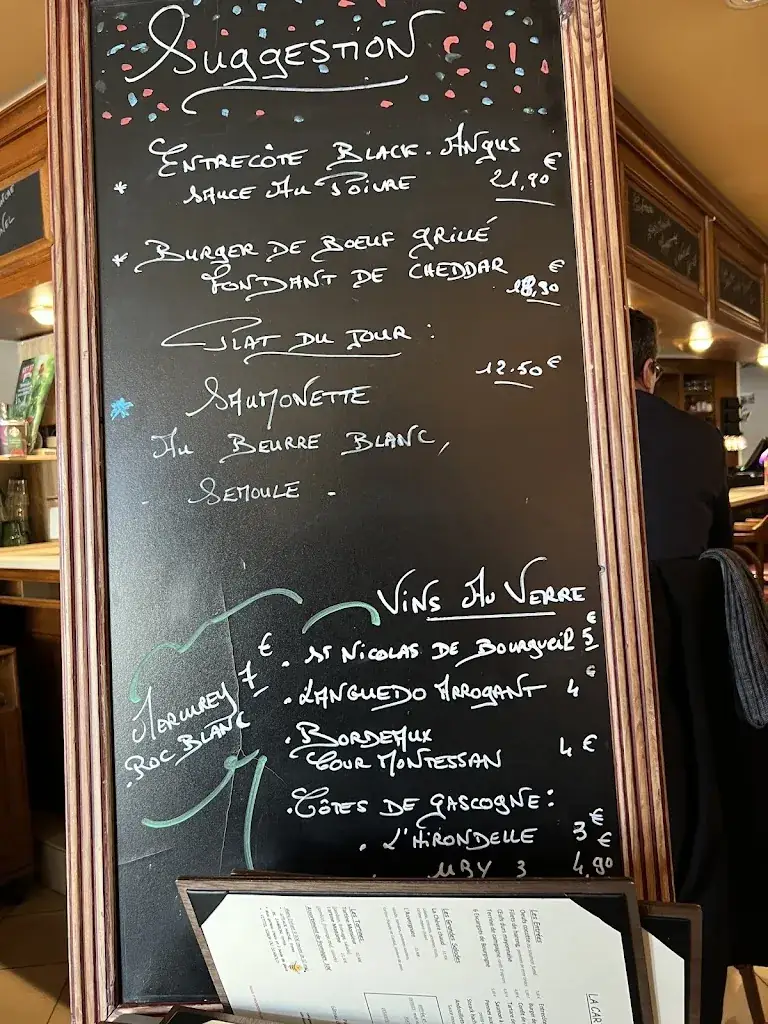 Suggestion
* Entrecôte Black. Angus
Sauce Au Poivre 21,90 €
* Burger de Boeuf grillé
Fondant de Cheddar 18,90 €
Plat du Jour :
12.50 €
Saumonette
Au Beurre Blanc,
- Semoule -
Vins Au Verre
. St Nicolas de Bourgueil 5 €
. Languedo Arrogant 4 €
. Bordeaux
Cour Montessan 4 €
. Côtes de Gascogne :
. L'Hirondelle 3 €
. UBY 3 4,90 €
Mercurey 7 €
. Roc Blanc
Les Entrées
Les Grandes Salades
Les Terrines
LA CAR